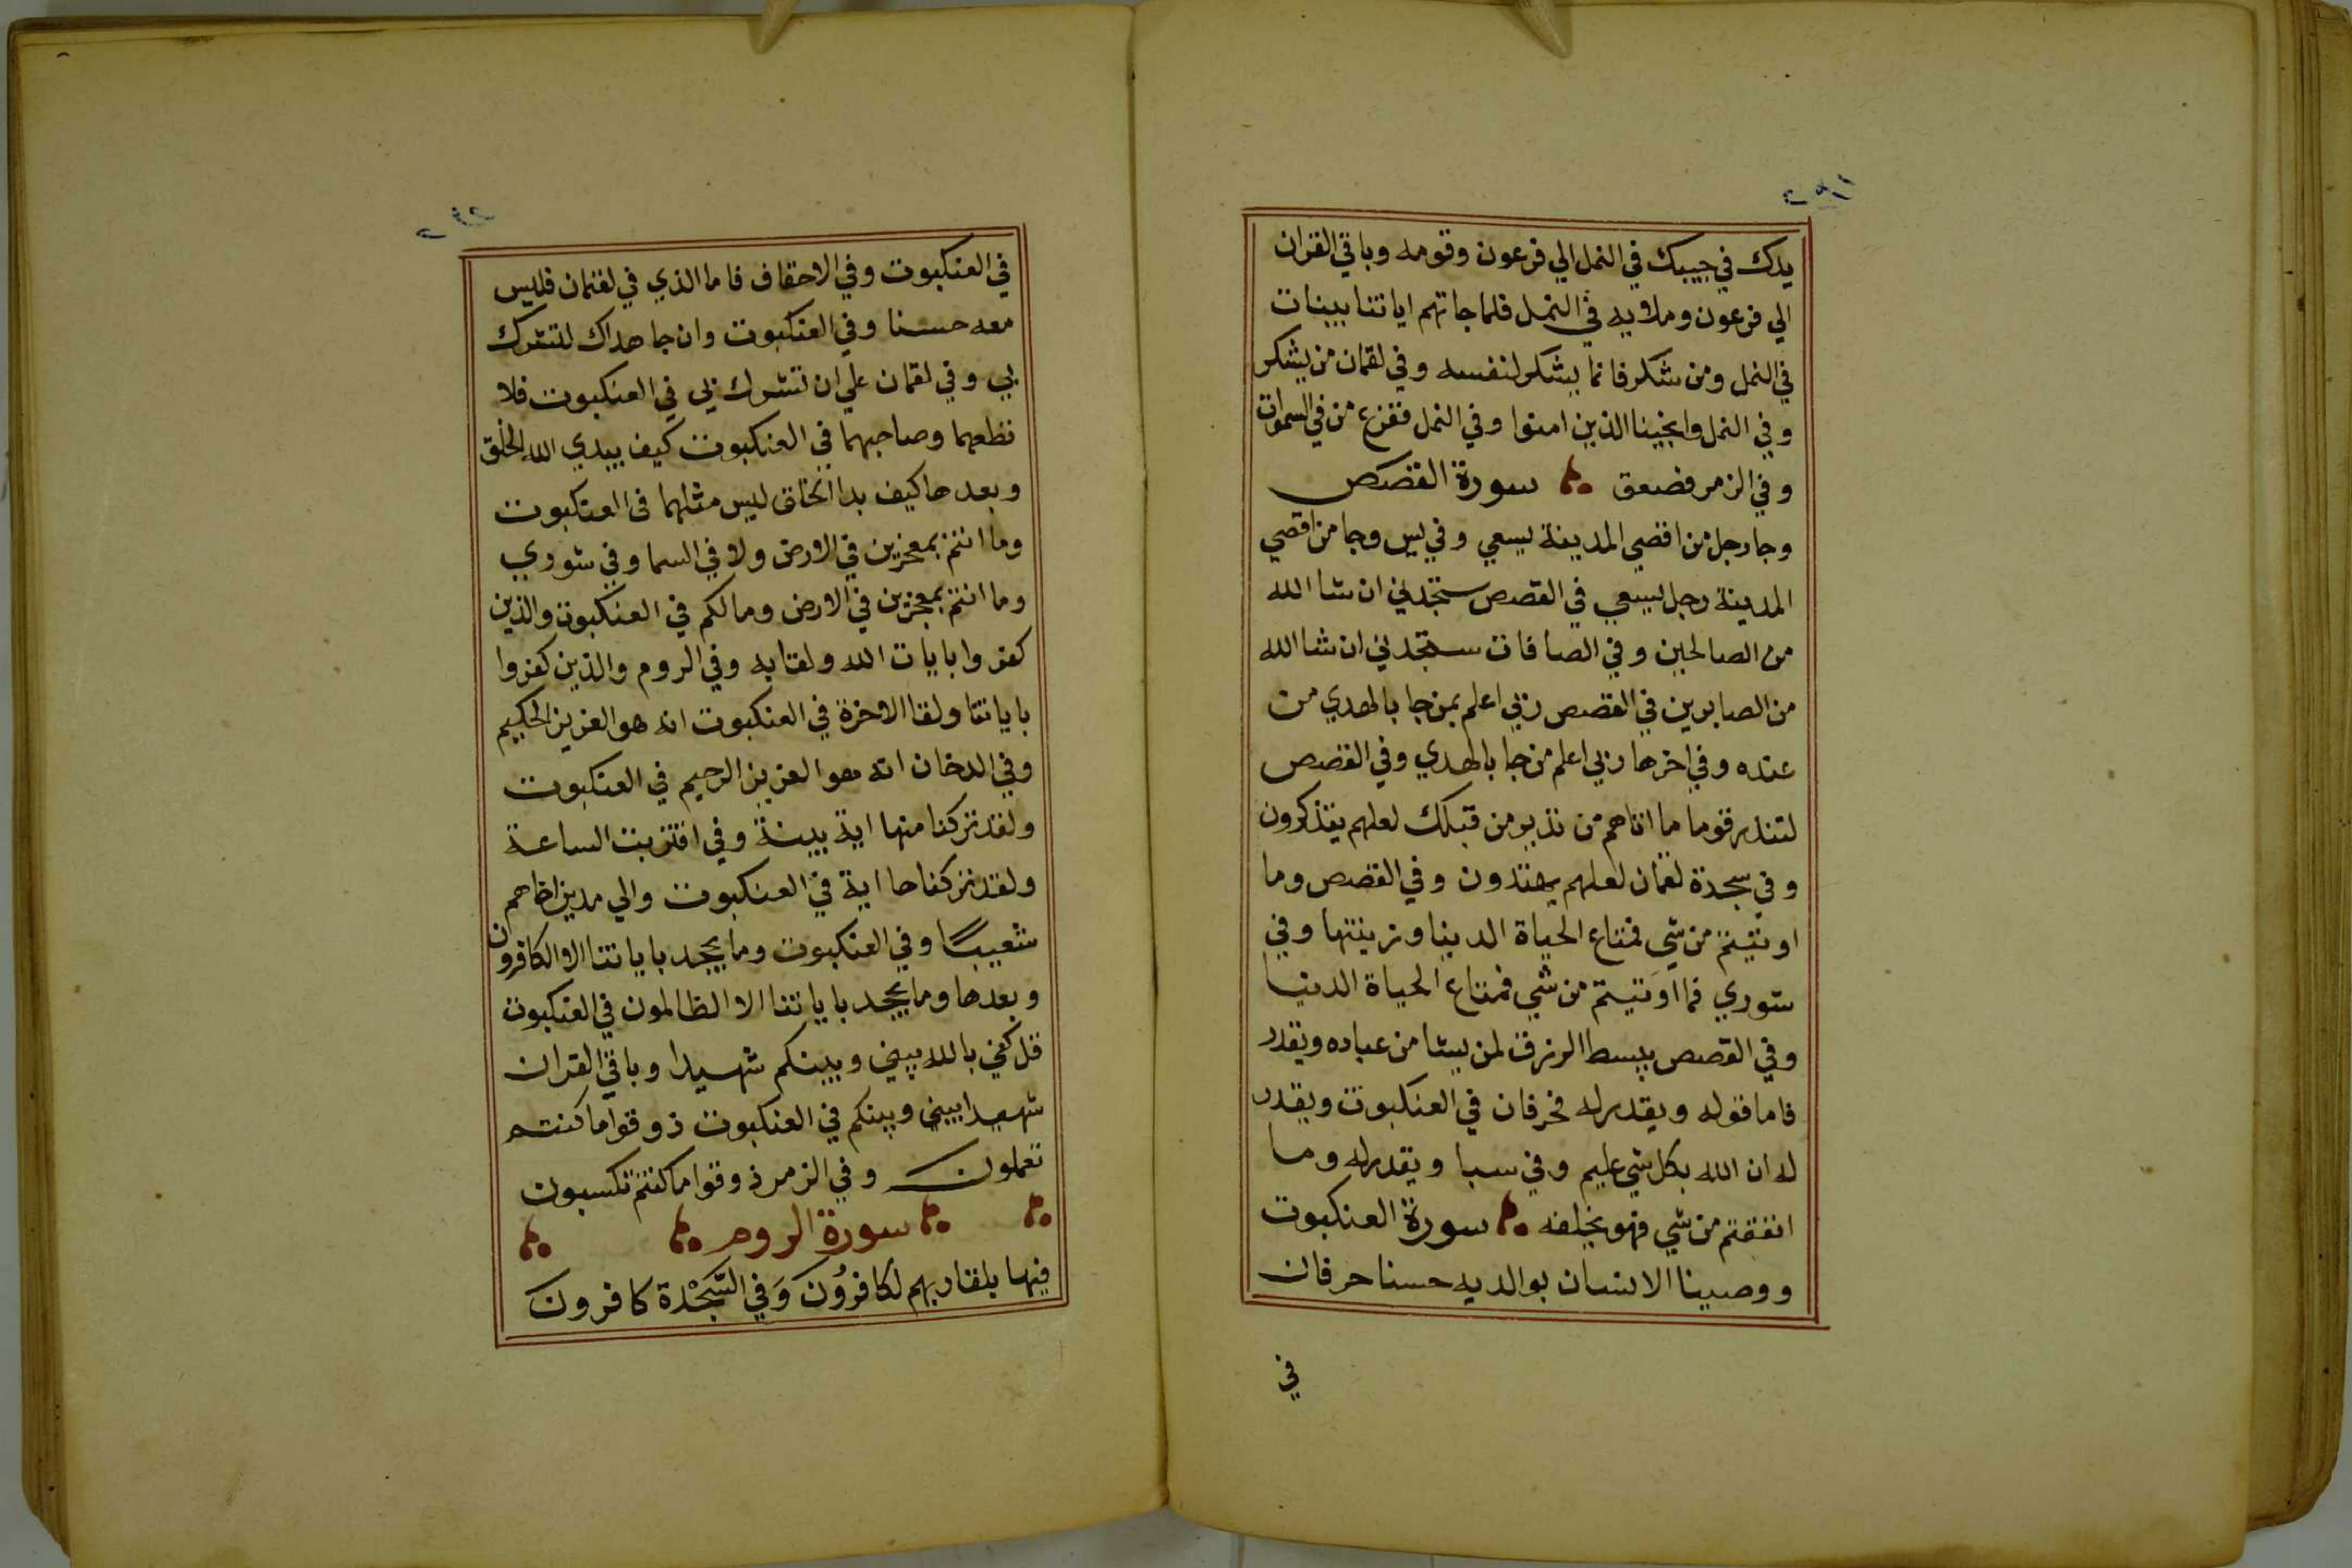 يدك في جيبك في النمل الي فرعون وقومه وباقي القران
الي فرعون وملايه في النمل فلما جاتهم اياتنا بينات
في النمل ومن شكر فانما يشكر لنفسه وفي لقمان من يشكر
وفي النمل وانجينا الذين امنوا وفي النمل ففزع من في السموات
وفي الزمر فصعق سورة القصص
وجا رجل من اقصي المدينة يسعي وفي يس وجا من اقصي
المدينة رجل يسعي في القصص ستجدني ان شا الله
من الصالحين وفي الصافات ستجدني ان شا الله
من الصابرين في القصص ربي اعلم بمن جا بالهدي من
عنده وفي اخرها ربي اعلم من جا بالهدي وفي القصص
لتنذر قوما ما اتاهم من نذير من قبلك لعلهم يتذكرون
وفي سجدة لقمان لعلهم يهتدون وفي القصص وما
اوتيتم من شي فمتاع الحياة الدنيا وزينتها وفي
شوري فما اوتيتم من شي فمتاع الحياة الدنيا
وفي القصص يبسط الرزق لمن يشا من عباده ويقدر
فاما قوله ويقدر له فحرفان في العنكبوت ويقدر
له ان الله بكل شي عليم وفي سبا ويقدر له وما
انفقتم من شي فهو يخلفه سورة العنكبوت
ووصينا الانسان بوالديه حسنا حرفان
في
في العنكبوت وفي الاحقاف فاما الذي في لقمان فليس
معه حسنا وفي العنكبوت وان جاهداك لتشرك
بي وفي لقمان علي ان تشرك بي في العنكبوت فلا
تطعهما وصاحبهما في العنكبوت كيف يبدي الله الخلق
وبعدها كيف بدا الخلق ليس مثلهما في العنكبوت
وما انتم بمعجزين في الارض ولا في السما وفي شوري
وما انتم بمعجزين في الارض ومالكم في العنكبوت والذين
كفروا بايات الله ولقايه وفي الروم والذين كفروا
باياتنا ولقا الاخرة في العنكبوت انه هو العزيز الحكيم
وفي الدخان انه هو العزيز الرحيم في العنكبوت
ولقد تركنا منها اية بينة وفي اقتربت الساعة
ولقد تركناها اية في العنكبوت والي مدين اخاهم
شعيبًا وفي العنكبوت وما يجحد باياتنا الا الكافرون
وبعدها وما يجحد باياتنا الا الظالمون في العنكبوت
قل كفي بالله بيني وبينكم شهيدا وباقي القران
شهيدا بيني وبينكم في العنكبوت ذوقوا ما كنتم
تعملون وفي الزمر ذوقوا ما كنتم تكسبون
سورة الروم
فيها بلقا ربهم لكافرُون وَفي السَّجْدة كافرون